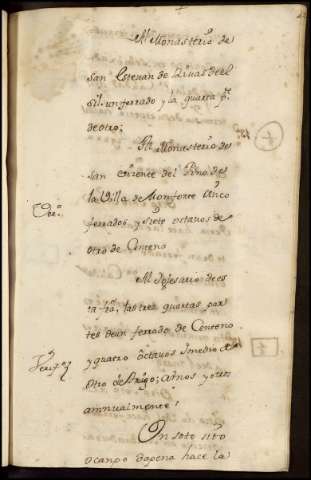 Al Monasterio de
San Estevan de Rivas de el
sil un ferrado y la quarta pte
de otro;
Al Monasterio de
san Vicente del Pino de
la Villa de Monforte Cinco
ferrados y siete octavos de
otro de Centeno
Al Iglesario de es
ta fra. las tres quartas par
tes de un ferrado de Centeno
y quatro octavos i medio de
otro de trigo; a mos y otros
annualmente;
Un soto sito